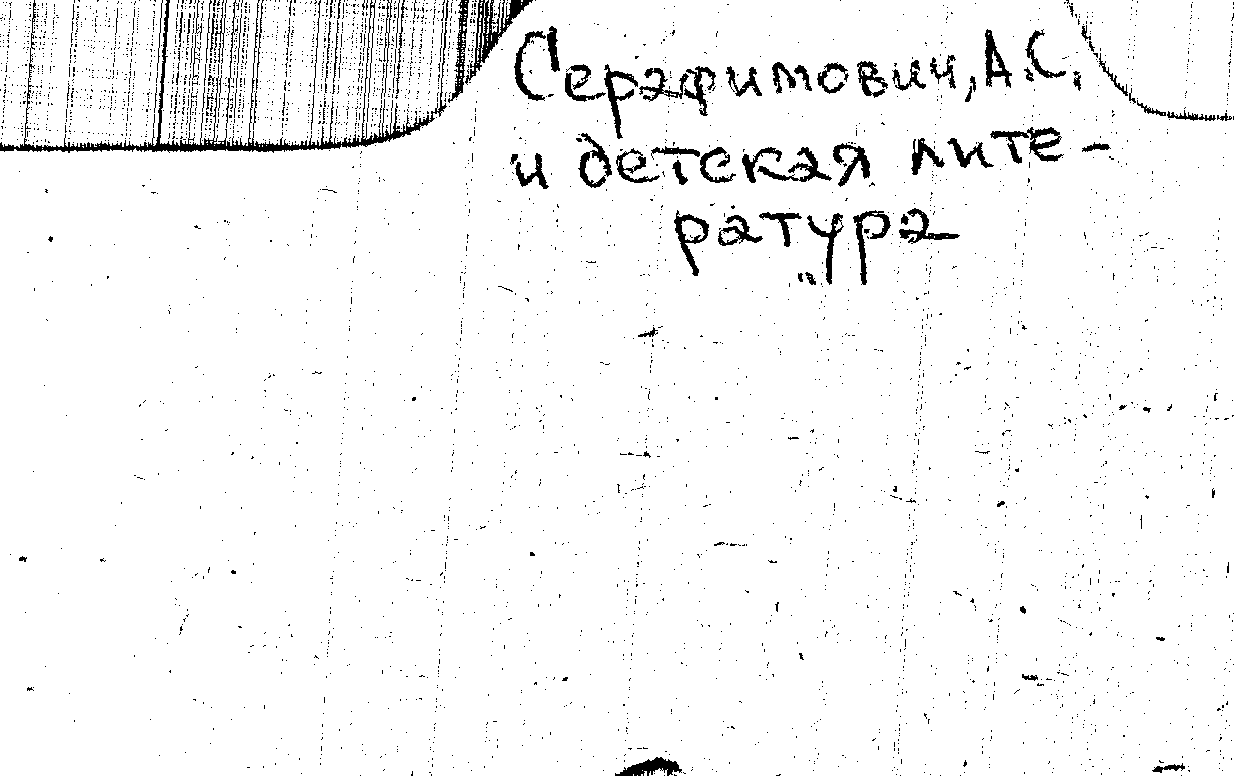 Серафимович, А.С.
и детская лите-
ратура